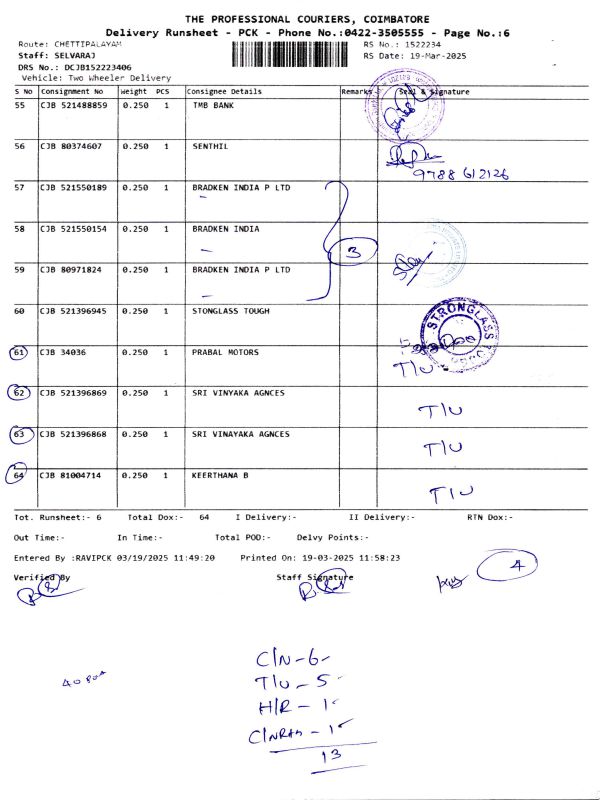 THE PROFESSIONAL COURIERS, COIMBATORE
Delivery Runsheet - PCK - Phone No.:0422-3505555 - Page No.:6
Route: CHETTIPALAYAM RS No.: 1522234
Staff: SELVARAJ RS Date: 19-Mar-2025
DRS No.: DCJB152223406
Vehicle: Two Wheeler Delivery
S No Consignment No Weight PCS Consignee Details Remarks Seal & Signature
55 CJB 521488859 0.250 1 TMB BANK
56 CJB 80374607 0.250 1 SENTHIL
9788 612126
57 CJB 521550189 0.250 1 BRADKEN INDIA P LTD
58 CJB 521550154 0.250 1 BRADKEN INDIA
3
59 CJB 80971824 0.250 1 BRADKEN INDIA P LTD
60 CJB 521396945 0.250 1 STONGLASS TOUGH
STRONGLASS
61 CJB 34036 0.250 1 PRABAL MOTORS
T/U
62 CJB 521396869 0.250 1 SRI VINYAKA AGNCES
T/U
63 CJB 521396868 0.250 1 SRI VINAYAKA AGNCES
T/U
64 CJB 81004714 0.250 1 KEERTHANA B
T/U
Tot. Runsheet:- 6 Total Dox:- 64 I Delivery:- II Delivery:- RTN Dox:-
Out Time:- In Time:- Total POD:- Delvy Points:-
Entered By :RAVIPCK 03/19/2025 11:49:20 Printed On: 19-03-2025 11:58:23
Verified By Staff Signature
4
C/N - 6
T/U - 5
H/R - 1
- 1
13